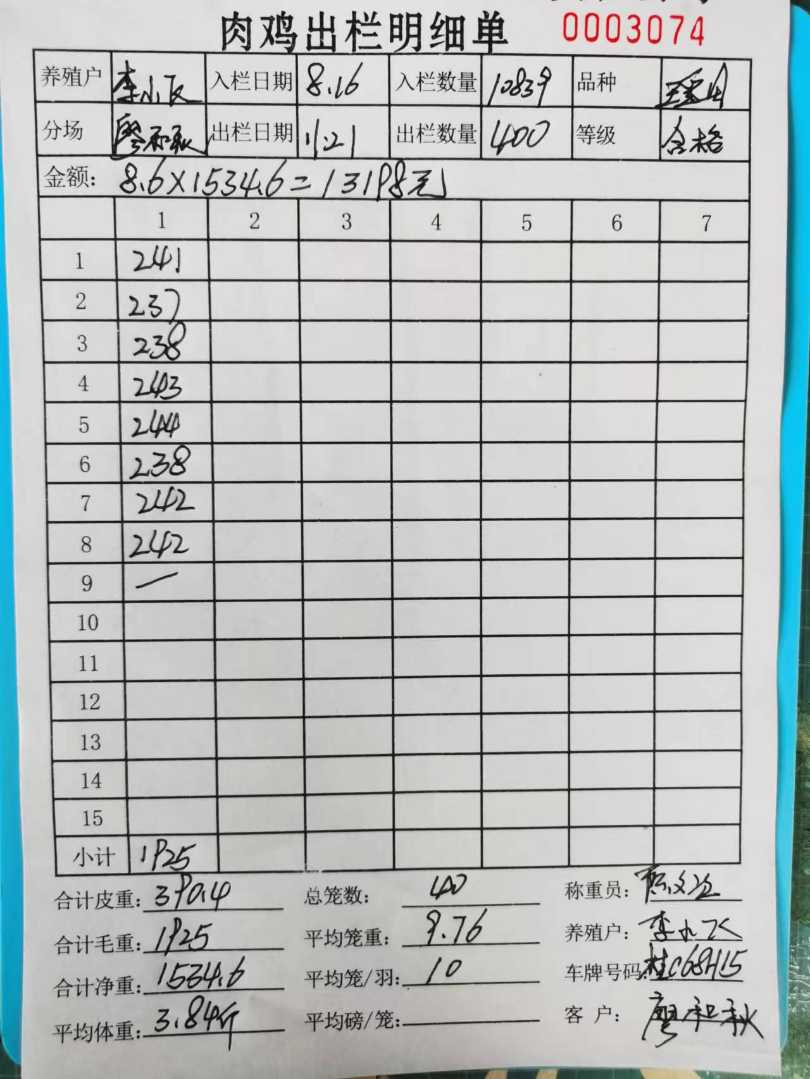 肉鸡出栏明细单 0003074
养殖户 李小 入栏日期 8.16 入栏数量 10839 品种
分场 廖和秋 出栏日期 11.21 出栏数量 400 等级 合格
金额: 8.6×1534.6=13198元
1 2 3 4 5 6 7
1 241
2 237
3 238
4 243
5 244
6 238
7 242
8 242
9 —
10
11
12
13
14
15
小计 1925
合计皮重: 390.4 总笼数: 40 称重员:
合计毛重: 1925 平均笼重: 9.76 养殖户: 李小
合计净重: 1534.6 平均笼/羽: 10 车牌号码: 桂C68H15
平均体重: 3.84斤 平均磅/笼: 客户: 廖和秋